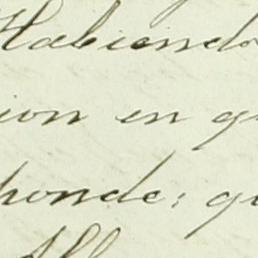 Habiendo
ion en qu
ponde; qu